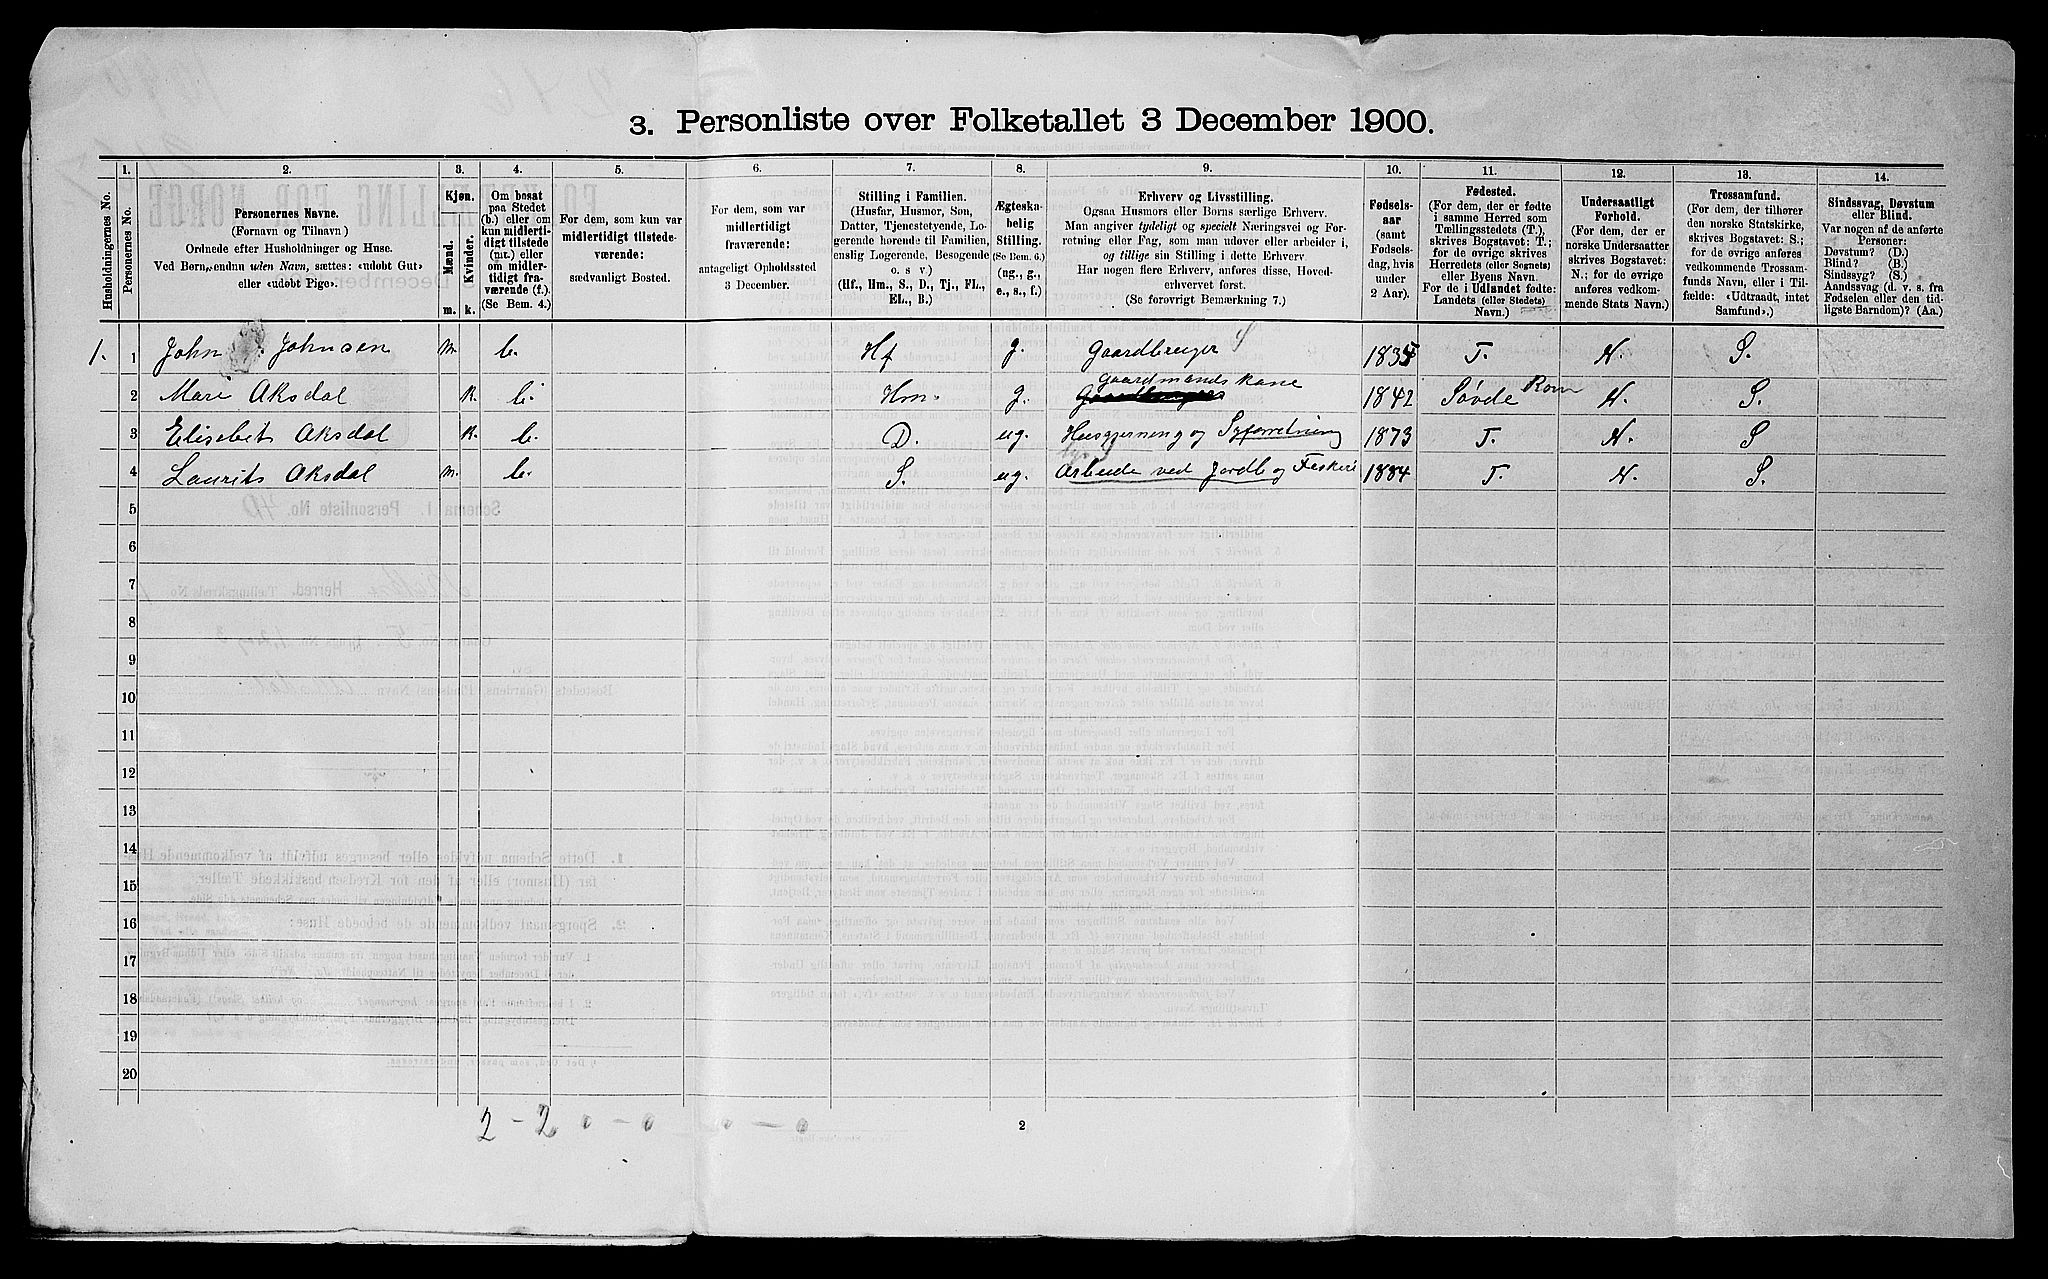 3. Personliste over Folketallet 3 December 1900.
1. 2. 3. 4. 5. 6. 7. 8. 9. 10. 11. 12. 13. 14.
Husholdningernes No.
Personernes No.
Personernes Navne.
(Fornavn og Tilnavn)
Ordnede efter Husholdninger og Huse.
Ved Børn, endnu uden Navn, sættes: «udøbt Gut»
eller «udøbt Pige».
Kjøn.
Mænd.
Kvinder.
m. k.
Om bosat
paa Stedet
(b.) eller om
kun midlerti-
digt tilstede
(mt.) eller
om midler-
tidigt fra-
værende (f.)
(Se Bem. 4.)
For dem, som kun var
midlertidigt tilstede-
værende:
sædvanligt Bosted.
For dem, som var
midlertidigt
fraværende:
antageligt Opholdssted
3 December.
Stilling i Familien.
(Husfar, Husmor, Søn,
Datter, Tjenestetyende, Lo-
gerende hørende til Familien,
enslig Logerende, Besøgende
o. s v.)
(Hf., Hm., S., D., Tj., FL.,
EL., B.)
Ægteska-
belig
Stilling.
(Se Bem. 6.)
(ug., g.,
e., s., f.)
Erhverv og Livsstilling.
Ogsaa Husmors eller Børns særlige Erhverv.
Man angiver tydeligt og specielt Næringsvei og For-
retning eller Fag, som man udøver eller arbeider i,
og tillige sin Stilling i dette Erhverv.
Har nogen flere Erhverv, anføres disse, Hoved-
erhvervet først.
(Se forøvrigt Bemærkning 7.)
Fødsels-
aar
(samt
Fødsels-
dag, hvis
under
2 Aar).
Fødested.
(For dem, der er fødte
i samme Herred som
Tællingsstedets (T.),
skrives Bogstavet: T.;
for de øvrige skrives
Herredets (eller Sognets)
eller Byens Navn.
For de i Udlandet fødte:
Landets (eller Stedets)
Navn.)
Undersaatligt
Forhold.
(For dem, der er
norske Undersaatter
skrives Bogstavet:
N.; for de øvrige
anføres vedkom-
mende Stats Navn.)
Trossamfund.
(For dem, der tilhører
den norske Statskirke,
skrives Bogstavet: S.;
for de øvrige anføres
vedkommende Trossam-
funds Navn, eller i Til-
fælde: «Udtraadt, intet
Samfund».)
Sindssvag, Døvstum
eller Blind.
Var nogen af de anførte
Personer:
Døvstum? (D.)
Blind? (B.)
Sindssyg? (S.)
Aandssvag (d. v. s. fra
Fødselen eller den tid-
ligste Barndom)? (Aa.)
1. 1 John Johnsen m. b. Hf g. Gaardbruger 1835 T. N. S.
Gaardmandskone
2 Mari Aksdal k. b. Hm. g. 1842 Søvde N. S.
3 Elisebet Aksdal k. b. D. ug. Husgjerning og Syforretning 1873 T. N. S
4 Laurits Aksdal m. b. S. ug. Arbeide ved Jordb og Fiskeri 1884 T. N. S.
5
6
7
8
9
10
11
12
13
14
15
16
17
18
19
20
2 - 2 0 - 0 0 - 0
2